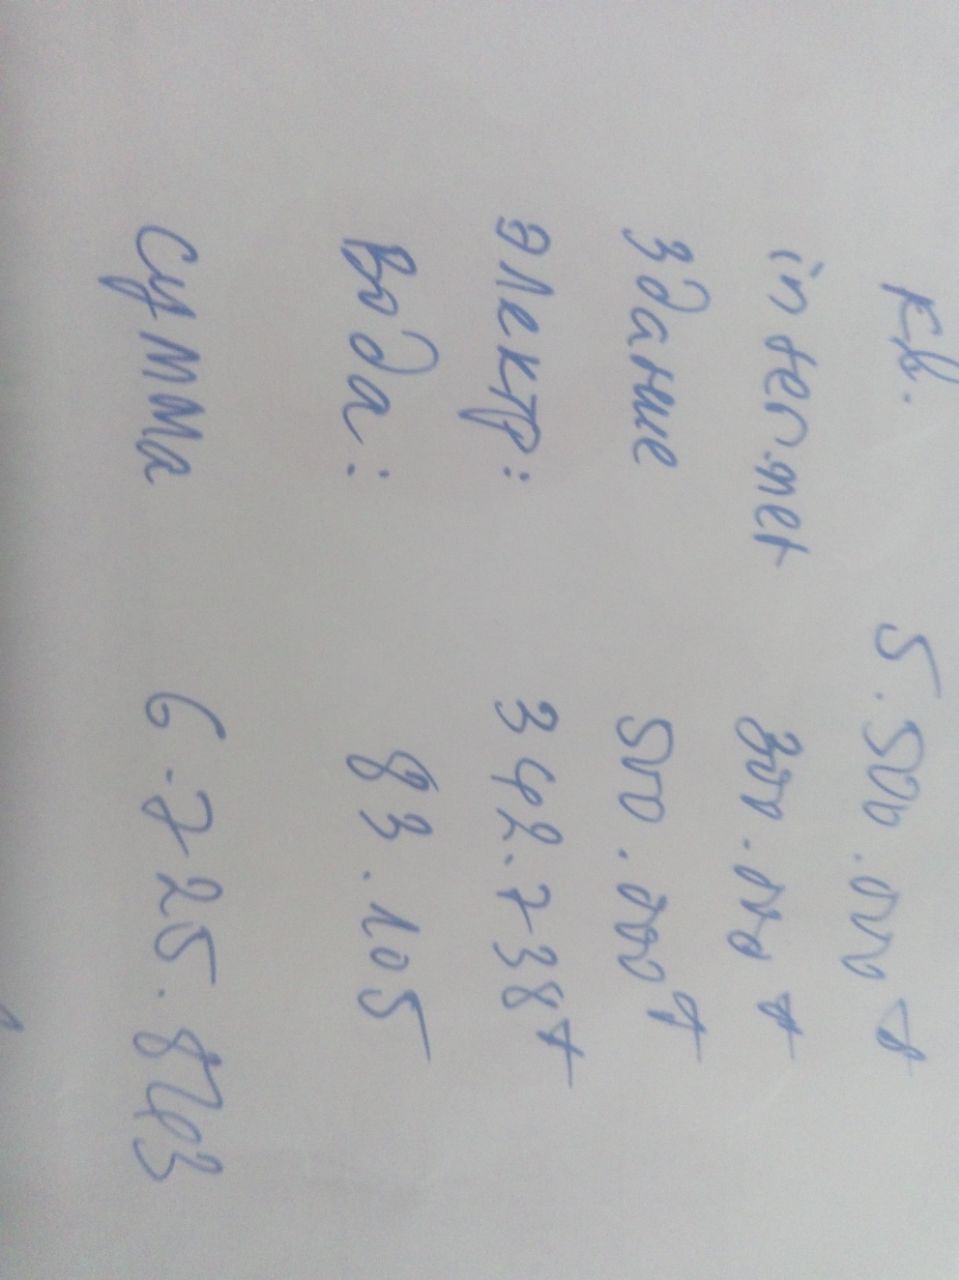 кв. 5.500.000 +
internet 300.000 +
здание 500.000 +
электр: 342.738 +
Вода: 83.105
Сумма 6.725.843